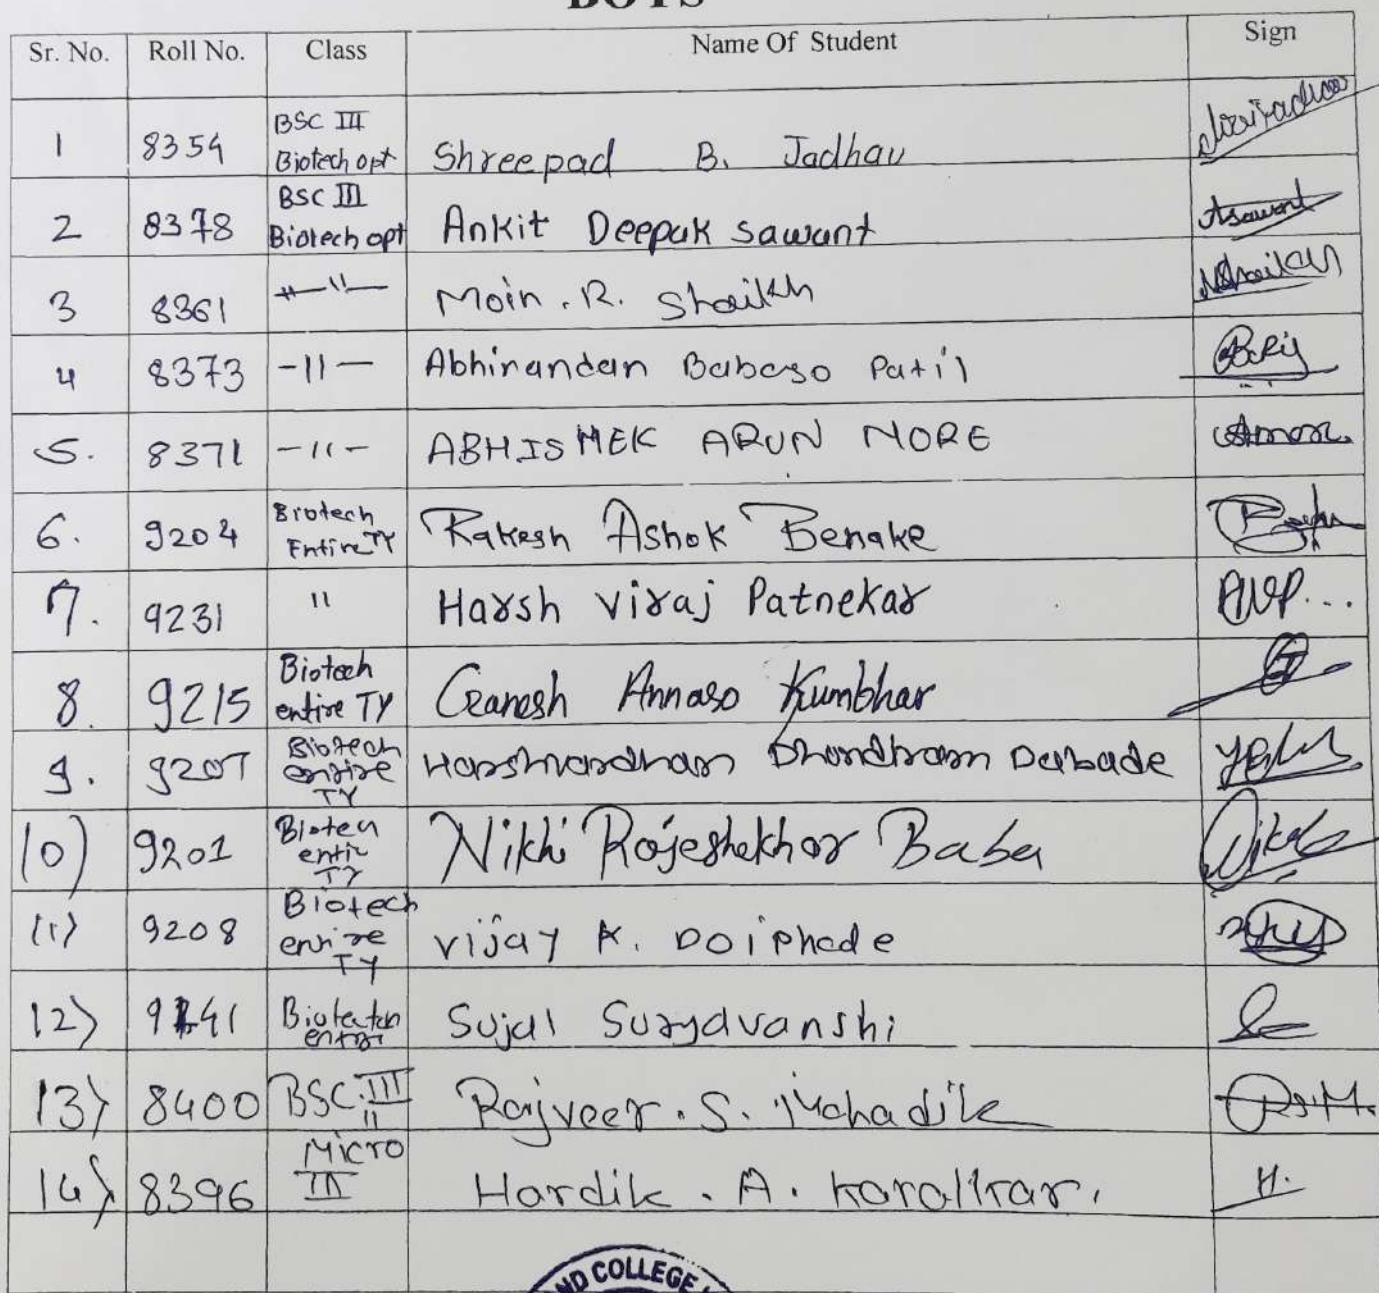 BOYS
Sr. No. Roll No. Class Name Of Student Sign
1 8354 BSC III Biotech opt Shreepad B. Jadhav
2 8378 BSC III Biotech opt Ankit Deepak Sawant Asawant
3 8361 -11- Moin. R. Shaikh
4 8373 -11- Abhinandan Babaso Patil
5. 8371 -11- ABHISHEK ARUN MORE
6. 9204 Biotech Entire TY Rakesh Ashok Benake
7. 9231 11 Harsh Viraj Patnekar
8. 9215 Biotech entire TY Ganesh Annaso Kumbhar
9. 9207 Biotech entire TY Harshvardhan Dhondiram Dabade
10) 9201 Biotech entire TY Nikhi Rajeshekhar Baba
11) 9208 Biotech entire TY Vijay A. Doiphode
12) Sujal Suryavanshi
13) 8400 BSC.III 11 Rajveer. S. Mahadik R.S.M.
14) 8396 Micro III Hardik. A. Karalkar. H.
ND COLLEGE